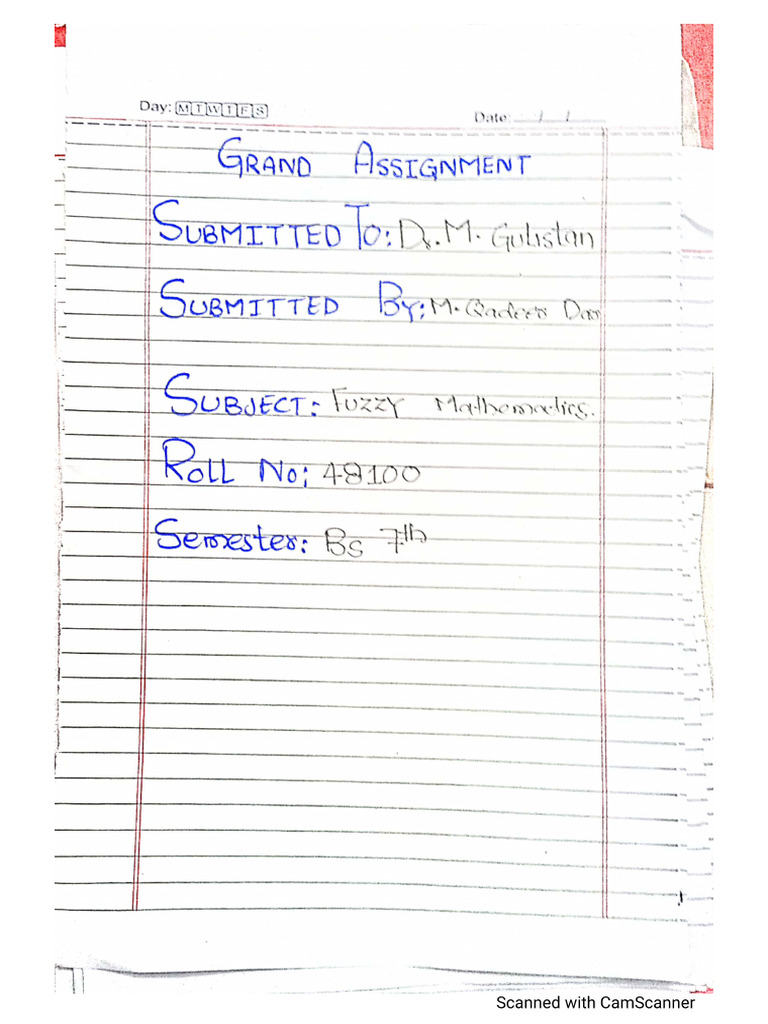 Day: M T W T F S
Date: __/__/__
GRAND ASSIGNMENT
SUBMITTED TO: Dr. M. Gulistan
SUBMITTED BY: M. Qadeer Dar
SUBJECT: Fuzzy Mathematics.
ROLL No: 48100
Semester: Bs 7th
Scanned with CamScanner